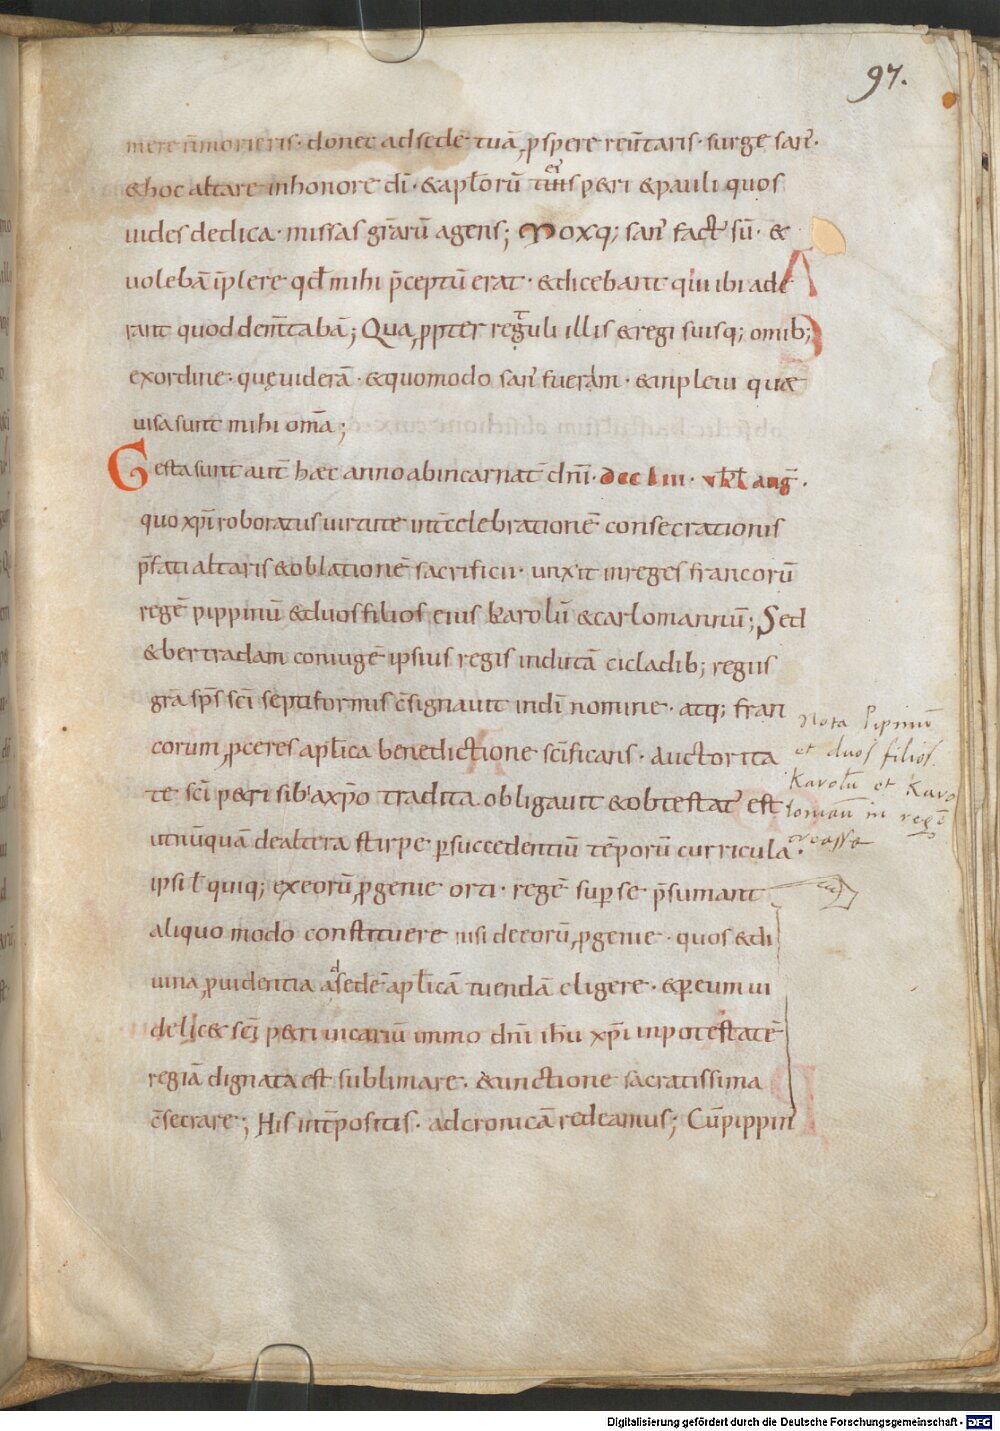 97.
mere n̄ morieris · donec ad sedē tuā ꝓspere reuertaris · surge san᷒ ·
& hoc altare in honore dī · & apl̄orū eius petri & pauli quos
uides dedica · missas gr̄arū agens; Moxq; san᷒ fact᷒ sū · &
uolebā īplere qd̄ mihi p̄ceptū erat · & dicebant qui ibi ade
rant quod dem̄tabā; Quaꝓpter retuli illis & regi suisq; omīb;
ex ordine · quę uiderā · & quomodo san᷒ fuerā · & inpleui quae
uisa sunt mihi om̄a;
Gesta sunt aut̄ haec anno ab incarnat̄ dn̄i · dccliii · v kl̄ aug̅ ·
quo xp̄i roboratus uirtute int̄ celebrationē consecrationis
p̄fati altaris & oblationē sacrificii · unxit in reges francorū
regē pippinū & duos filios eius karolū & carlomannū; Sed
& bertradam coniugē ipsius regis indutā cicladib; regiis
gr̄a sp̄s sc̄i septiformis c̄signauit in dī nomine · atq; fran
corum ꝓceres apl̄ica benedictione sc̄ificans · auctorita
te sc̄i petri sibi a xp̄o tradita obligauit & obtestat᷒ est
ut nūquā de altera stirpe ꝑ succedentiū tēporū curricula
ipsi ł quiq; ex eorū ꝓgenie orti · regē suꝑ se p̄sumant
aliquo modo constituere nisi de eorū ꝓgenie · quos & di
uina ꝓuidentia ad sedē apl̄icā tuendā eligere · & ꝑ eum ui
delicet sc̄i petri uicariū immo dn̄i ih̄u xp̄i in potestatē
regiā dignata est sublimare · & unctione sacratissima
c̄secrare; His int̄positis · ad cronicā redeamus; Cū pippin᷒
Nota Pipinū
et duos filios
Karolū et Karo
lomanū in regē
creasse
Digitalisierung gefördert durch die Deutsche Forschungsgemeinschaft - DFG